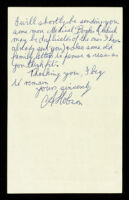 I will shortly be sending you
some more Medical Books which
may be duplicates of the ones I have
already sent you also some old
family letters to peruse & use as
you think fit.
Thanking you, I beg
to remain
Yours sincerely